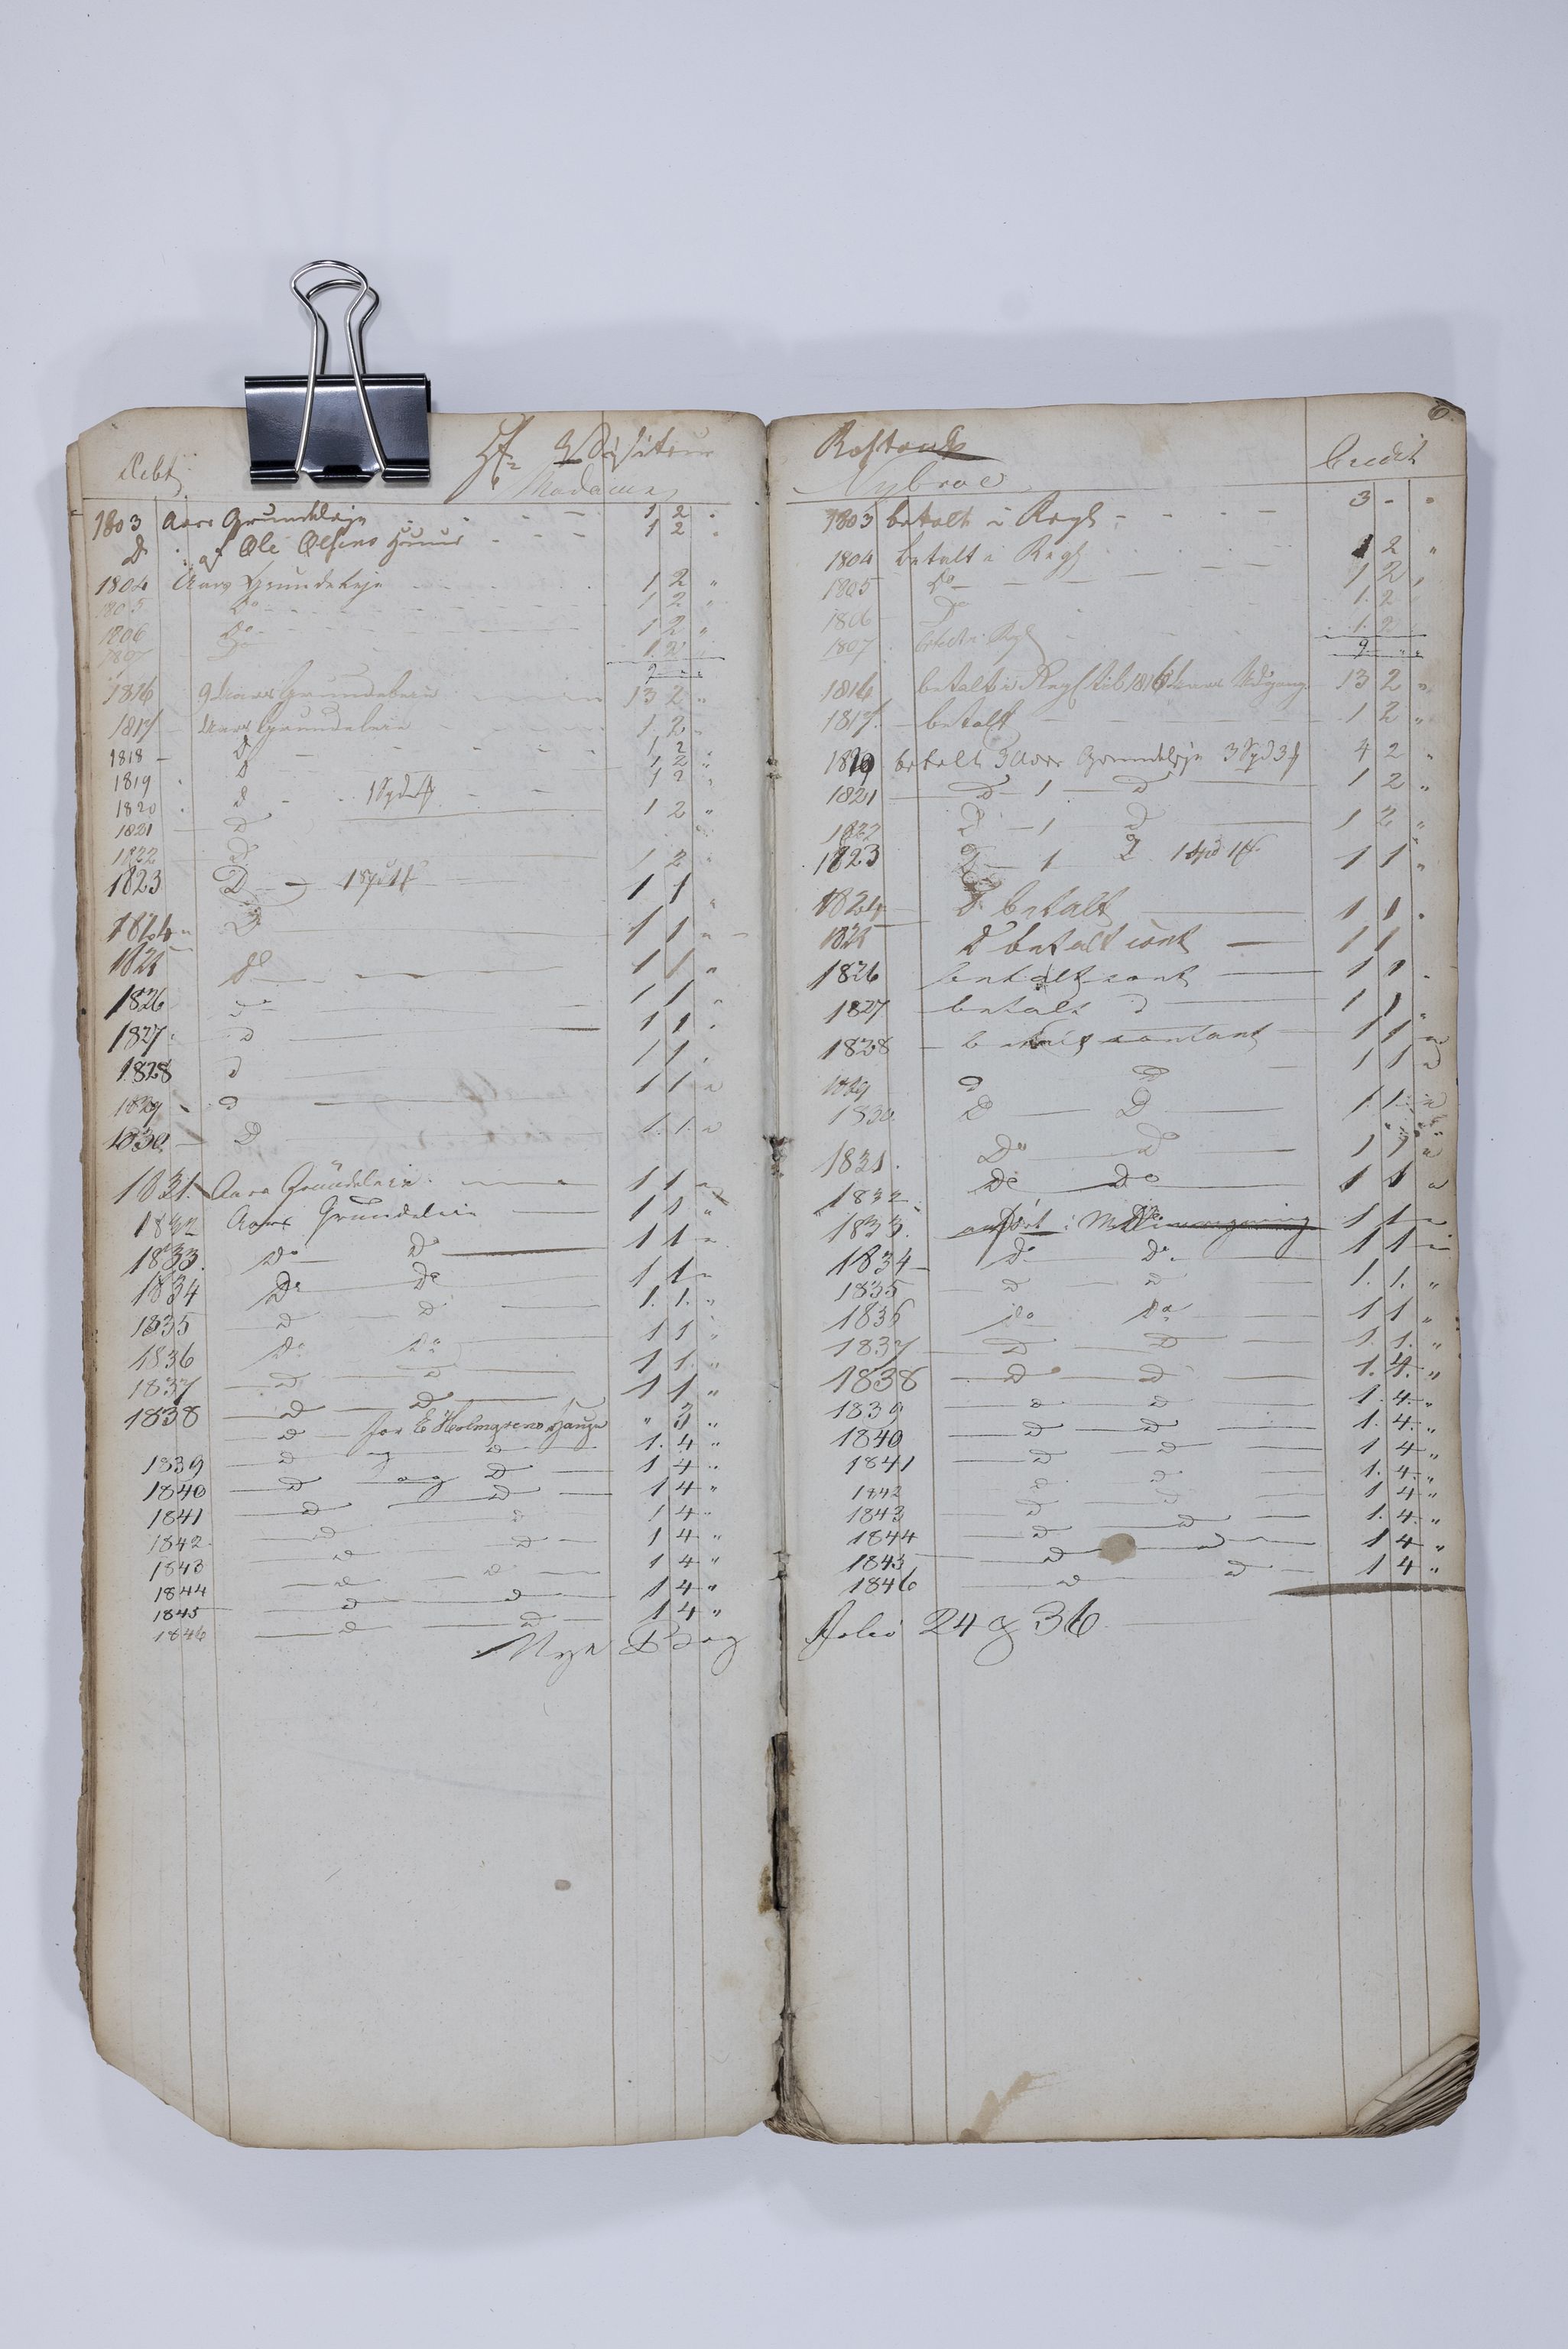 Debt Hr Visiteur
Madame
1803 Aars Grundeleje 1 2 "
D af Ole Olsens Huus 1 2 "
1804 Aars Grundeleje 1 2 "
1805 Do 1 2 "
1806 Do 1 2 "
1807 Do 1 2 "
9 " "
1816 9 Aars Grundeleie 13 2 "
1817 Aars Grundeleie 1 2 "
1818 D 1 2 "
1819 D 1 2 "
1820 D 1 Spd 1 2 "
1821 D 1 2 "
1822 D 1 2 "
1823 D 1 Spd 1 1 1 "
1824 D 1 1 "
1825 Do 1 1 "
1826 Do 1 1 "
1827 D 1 1 "
1828 D 1 1 "
1829 D 1 1 "
1830 D 1. 1. "
1831. Aars Grundeleie 1 1 "
1832 Aars Grundeleie 1 1 "
1833. Do Do 1 1 "
1834 Do Do 1 1 "
1835 D D 1. 1. "
1836 Do Do 1 1 "
1837 D D 1 1. "
1838 D D 1 1 "
D for E Holmgrens Hauge " 3 "
1839 D og D 1. 4 "
1840 D og D 1 4 "
1841 D D 1 4 "
1842 D D 1 4 "
1843 D D 1 4 "
1844 D D 1 4 "
1845 D D 1 4 "
1846 D D 1 4 "
Nye Bog
6.
Credit
Nybroe
1803 betalt i Regh 3 - "
1804 betalt i Regh 1 2 "
1805 Do 1 2 "
1806 Do 1. 2 "
1807 betalt i Regh 1. 2 "
9 " "
1816 betalt i Regh til 1816 Aars Udgang 13 2 "
1817 betalt 1 2 "
1819 betalt 3 Aars Grundeleje 3 Spd 3 4 2 "
1821 D 1 D 1 2 "
1822 D 1 D 1 2 "
1823 D 1 D 1 Spd 1 1 1 "
1824 D betalt 1 1 "
1825 D betalt cont 1 1
1826 betalt cont 1 1 "
1827 betalt D 1 1 "
1828 betalt contant 1 1 "
1829 D D 1 1 "
1830. D D 1. 1. "
1831. Do D 1 1 "
1832 Do Do 1 1 "
1833. anført i Mellemregning 1 1 "
1834 Do Do 1 1 "
1835 D D 1. 1. "
1836 Do Do 1 1 "
1837 D D 1. 1. "
1838 D D 1. 4. "
1839 D D 1. 4. "
1840 D D 1. 4. "
1841 D D 1 4 "
1842 D D 1. 4. "
1843 D D 1 4 "
1844 D D 1. 4. "
1845 D D 1 4 "
1846 D D 1 4 "
Folio 24 & 36